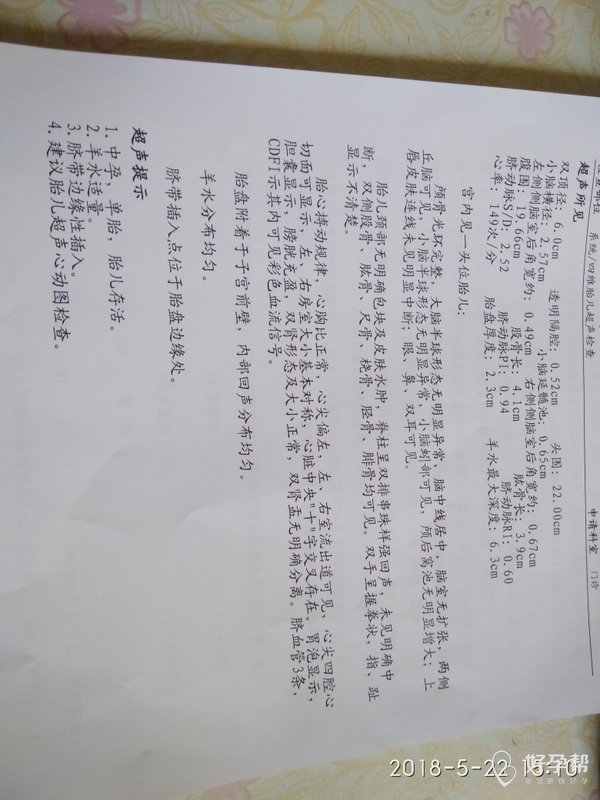 系统/四维胎儿超声检查 申请科室 门诊
超声所见
双顶径: 6.0cm 透明隔腔: 0.52cm 头围: 22.00cm
小脑横径: 2.57cm 小脑延髓池: 0.65cm
左侧侧脑室后角宽约: 0.49cm 右侧侧脑室后角宽约: 0.67cm
腹围: 19.66cm 股骨长: 4.1cm 肱骨长: 3.9cm
脐动脉S/D: 2.52 脐动脉PI: 0.94 脐动脉RI: 0.60
心率: 149次/分 胎盘厚度: 2.3cm 羊水最大深度: 6.3cm
宫内见一头位胎儿:
颅骨光环完整, 大脑半球形态无明显异常, 脑中线居中, 脑室无扩张, 两侧
丘脑可见, 小脑半球形态无明显异常, 小脑蚓部可见, 颅后窝池无明显增大; 上
唇皮肤连线未见明显中断; 眼、鼻、双耳可见。
胎儿颈部无明确包块及皮肤水肿, 脊柱呈双排串珠样强回声, 未见明确中
断, 双侧股骨、肱骨、尺骨、桡骨、胫骨、腓骨均可见。双手呈握拳状, 指、趾
显示不清楚。
胎心搏动规律, 心胸比正常, 心尖偏左, 左、右室流出道可见, 心尖四腔心
切面可显示, 左、右房室大小基本对称, 心脏中央"十"字交叉存在。胃泡显示,
胆囊显示, 膀胱充盈, 双肾形态及大小正常, 双肾盂无明确分离。脐血管3条,
CDFI示其内可见彩色血流信号。
胎盘附着于子宫前壁, 内部回声分布均匀。
羊水分布均匀。
脐带插入点位于胎盘边缘处。
超声提示
1. 中孕, 单胎, 胎儿存活。
2. 羊水适量。
3. 脐带边缘性插入。
4. 建议胎儿超声心动图检查。
2018-5-22 15:10
好孕帮